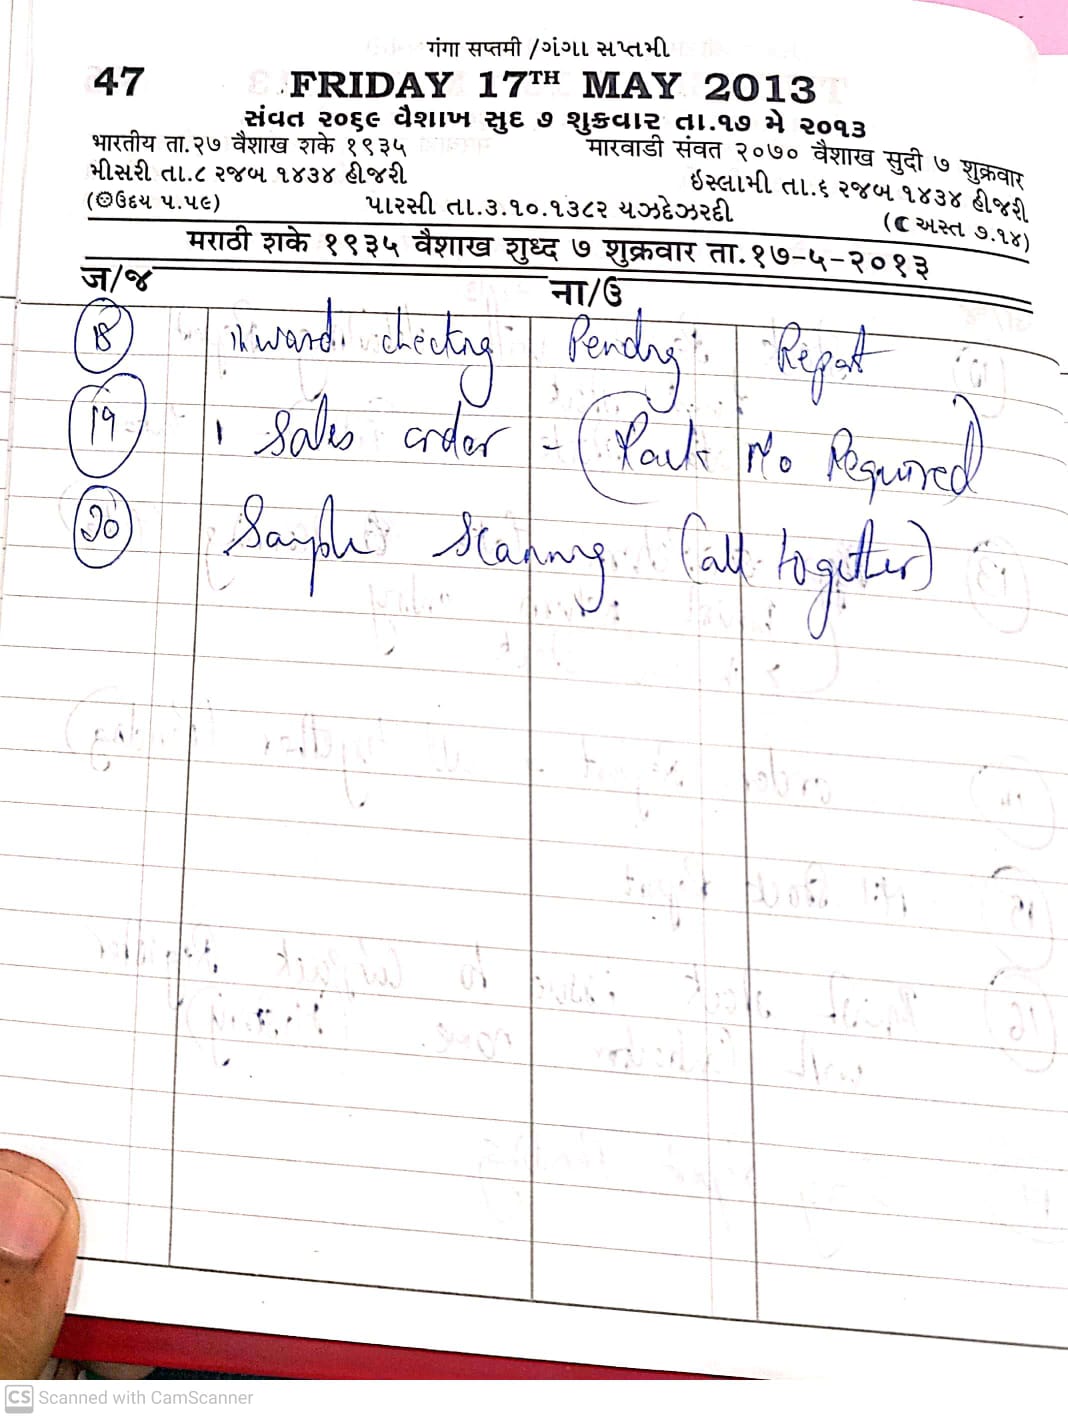 गंगा सप्तमी /ગંગા સપ્તમી
47 FRIDAY 17TH MAY 2013
સંવત ૨૦૬૯ વૈશાખ સુદ ૭ શુક્રવાર તા.૧૭ મે ૨૦૧૩
भारतीय ता.२७ वैशाख शके १९३५ मारवाडी संवत २०७० वैशाख सुदी ७ शुक्रवार
મીસરી તા.૮ રજબ ૧૪૩૪ હીજરી ઇસ્લામી તા.૬ રજબ ૧૪૩૪ હીજરી
(ઉદય ૫.૫૯) પારસી તા.૩.૧૦.૧૩૮૨ યઝદેઝરદી (અસ્ત ૭.૧૪)
मराठी शके १९३५ वैशाख शुध्द ७ शुक्रवार ता.१७-५-२०१३
ज/જ ना/ઉ
18 Inward checking Pending Report
19 Sales order - ( No Required)
20 Sample Scanning (all together)
CS Scanned with CamScanner